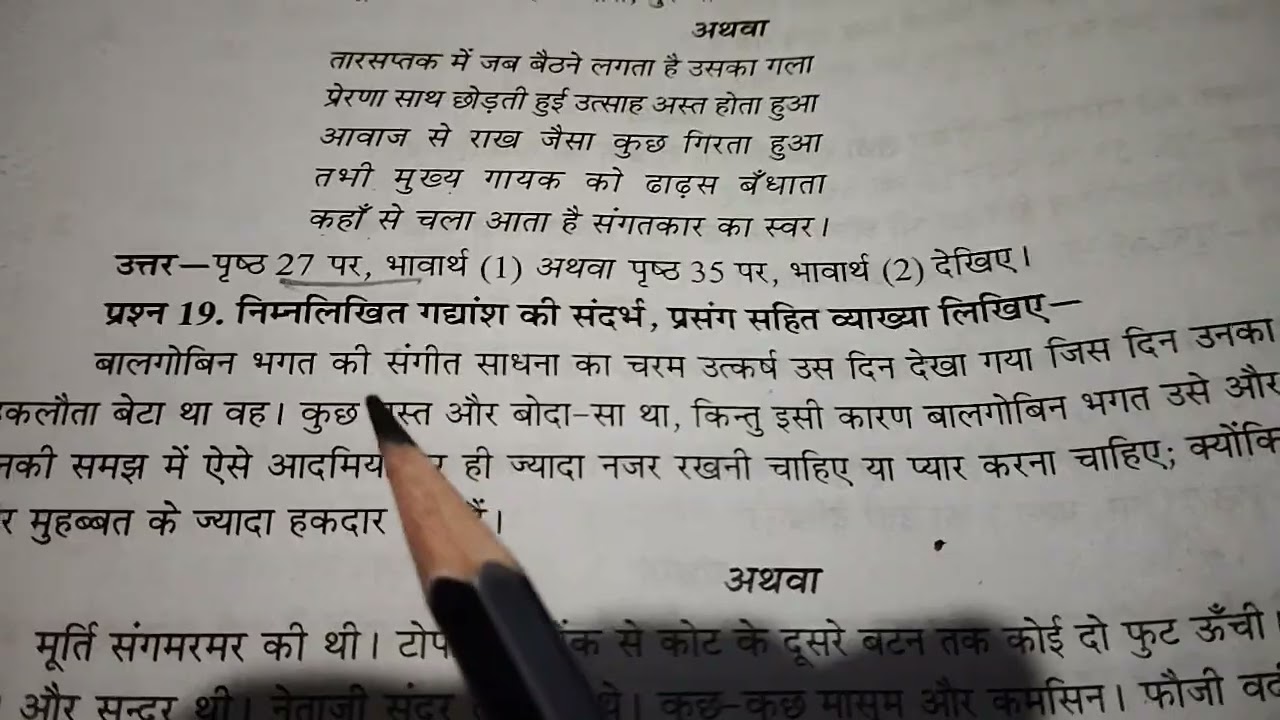 अथवा
तारसप्तक में जब बैठने लगता है उसका गला
प्रेरणा साथ छोड़ती हुई उत्साह अस्त होता हुआ
आवाज से राख जैसा कुछ गिरता हुआ
तभी मुख्य गायक को ढाढ़स बँधाता
कहाँ से चला आता है संगतकार का स्वर।
उत्तर—पृष्ठ 27 पर, भावार्थ (1) अथवा पृष्ठ 35 पर, भावार्थ (2) देखिए।
प्रश्न 19. निम्नलिखित गद्यांश की संदर्भ, प्रसंग सहित व्याख्या लिखिए—
बालगोबिन भगत की संगीत साधना का चरम उत्कर्ष उस दिन देखा गया जिस दिन उनका
बेटा था वह। कुछ और बोदा-सा था, किन्तु इसी कारण बालगोबिन भगत उसे और
समझ में ऐसे ही ज्यादा नजर रखनी चाहिए या प्यार करना चाहिए; क्योंकि
मुहब्बत के ज्यादा हकदार
अथवा
मूर्ति संगमरमर की थी। से कोट के दूसरे बटन तक कोई दो फुट ऊँची।
और सुन्दर थी। नेताजी सुंदर कुछ-कुछ मासूम और कमसिन। फौजी